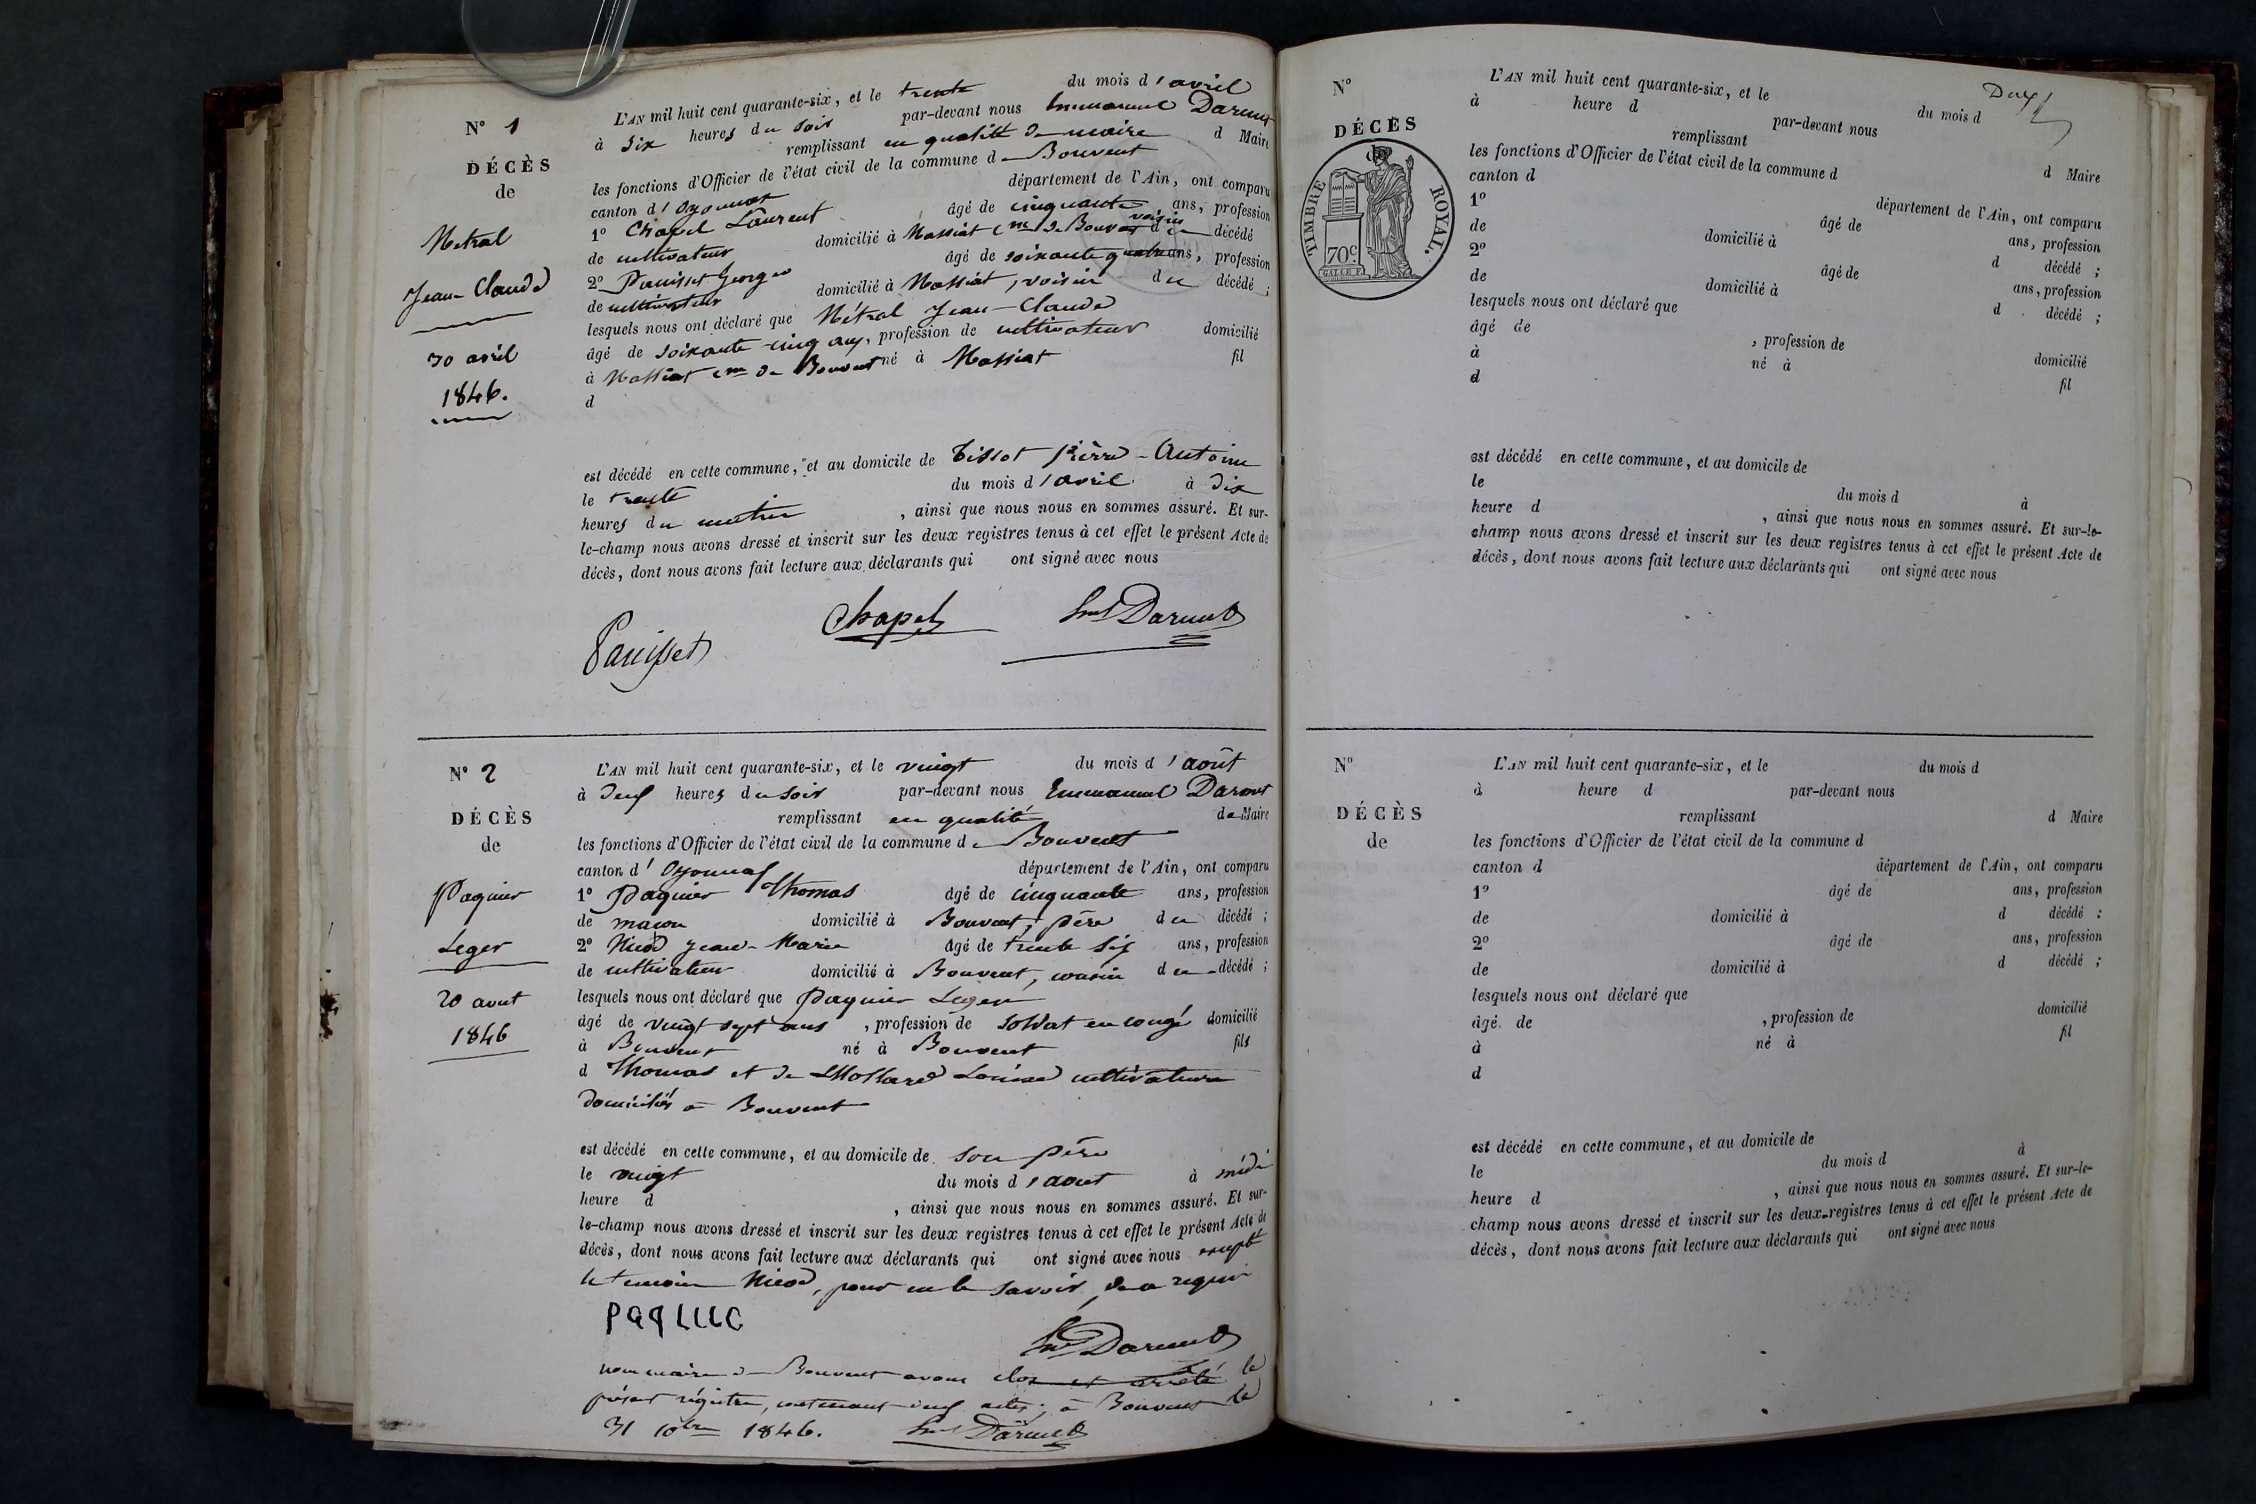 N° 1
DÉCÈS
de
Metral
Jean-Claude
30 avril
1846.
L'AN mil huit cent quarante-six, et le trente du mois d'avril
à six heures du soir par-devant nous Emmanuel Darmet
remplissant en qualité de maire d Maire
les fonctions d'Officier de l'état civil de la commune de Bouvent
canton d'Oyonnax département de l'Ain, ont comparu
1° Chapel Laurent âgé de cinquante ans, profession
de cultivateur domicilié à Massiat cne de Bouvent voisin du décédé
2° Panisset George âgé de soixante quatre ans, profession
de cultivateur domicilié à Massiat, voisin du décédé ;
lesquels nous ont déclaré que Métral Jean-Claude
âgé de soixante-cinq ans, profession de cultivateur domicilié
à Massiat cne de Bouvent né à Massiat fil
d
est décédé en cette commune, et au domicile de Tissot Pierre-Antoine
le trente du mois d'avril à dix
heures du matin , ainsi que nous nous en sommes assuré. Et sur-
le-champ nous avons dressé et inscrit sur les deux registres tenus à cet effet le présent Acte de
décès, dont nous avons fait lecture aux déclarants qui ont signé avec nous
Panisset Chapel Darmet
N° 2
DÉCÈS
de
Paquier
Leger
20 aout
1846
L'AN mil huit cent quarante-six, et le vingt du mois d'août
à deux heures du soir par-devant nous Emmanuel Darmet
remplissant en qualité de Maire
les fonctions d'Officier de l'état civil de la commune de Bouvent
canton d'Oyonnax département de l'Ain, ont comparu
1° Paquier Thomas âgé de cinquante ans, profession
de maçon domicilié à Bouvent, père du décédé ;
2° Nicod Jean-Marie âgé de trente six ans, profession
de cultivateur domicilié à Bouvent, cousin du décédé ;
lesquels nous ont déclaré que Paquier Leger
âgé de vingt sept ans , profession de soldat en congé domicilié
à Bouvent né à Bouvent fils
d Thomas et de Mollard Louise cultivateurs
domiciliés à Bouvent
est décédé en cette commune, et au domicile de son père
le vingt du mois d'aout à midi
heure d , ainsi que nous nous en sommes assuré. Et sur-
le-champ nous avons dressé et inscrit sur les deux registres tenus à cet effet le présent Acte de
décès, dont nous avons fait lecture aux déclarants qui ont signé avec nous excepté
le temoin Nicod, pour ne le savoir, de ce requis
Darmet
nous maire de Bouvent avons clos et arrêté le
présent régistre, contenant deux actes ; à Bouvent le
31 10bre 1846. Darmet
N°
DÉCÈS
de
TIMBRE ROYAL.
70c
L'AN mil huit cent quarante-six, et le du mois d
à heure d par-devant nous
remplissant d Maire
les fonctions d'Officier de l'état civil de la commune d
canton d département de l'Ain, ont comparu
1° âgé de ans, profession
de domicilié à d décédé ;
2° âgé de ans, profession
de domicilié à d décédé ;
lesquels nous ont déclaré que
âgé de , profession de domicilié
à né à fil
d
est décédé en cette commune, et au domicile de
le du mois d à
heure d , ainsi que nous nous en sommes assuré. Et sur-le-
champ nous avons dressé et inscrit sur les deux registres tenus à cet effet le présent Acte de
décès, dont nous avons fait lecture aux déclarants qui ont signé avec nous
N°
DÉCÈS
de
L'AN mil huit cent quarante-six, et le du mois d
à heure d par-devant nous
remplissant d Maire
les fonctions d'Officier de l'état civil de la commune d
canton d département de l'Ain, ont comparu
1° âgé de ans, profession
de domicilié à d décédé :
2° âgé de ans, profession
de domicilié à d décédé ;
lesquels nous ont déclaré que
âgé de , profession de domicilié
à né à fil
d
est décédé en cette commune, et au domicile de
le du mois d à
heure d , ainsi que nous nous en sommes assuré. Et sur-le-
champ nous avons dressé et inscrit sur les deux registres tenus à cet effet le présent Acte de
décès, dont nous avons fait lecture aux déclarants qui ont signé avec nous